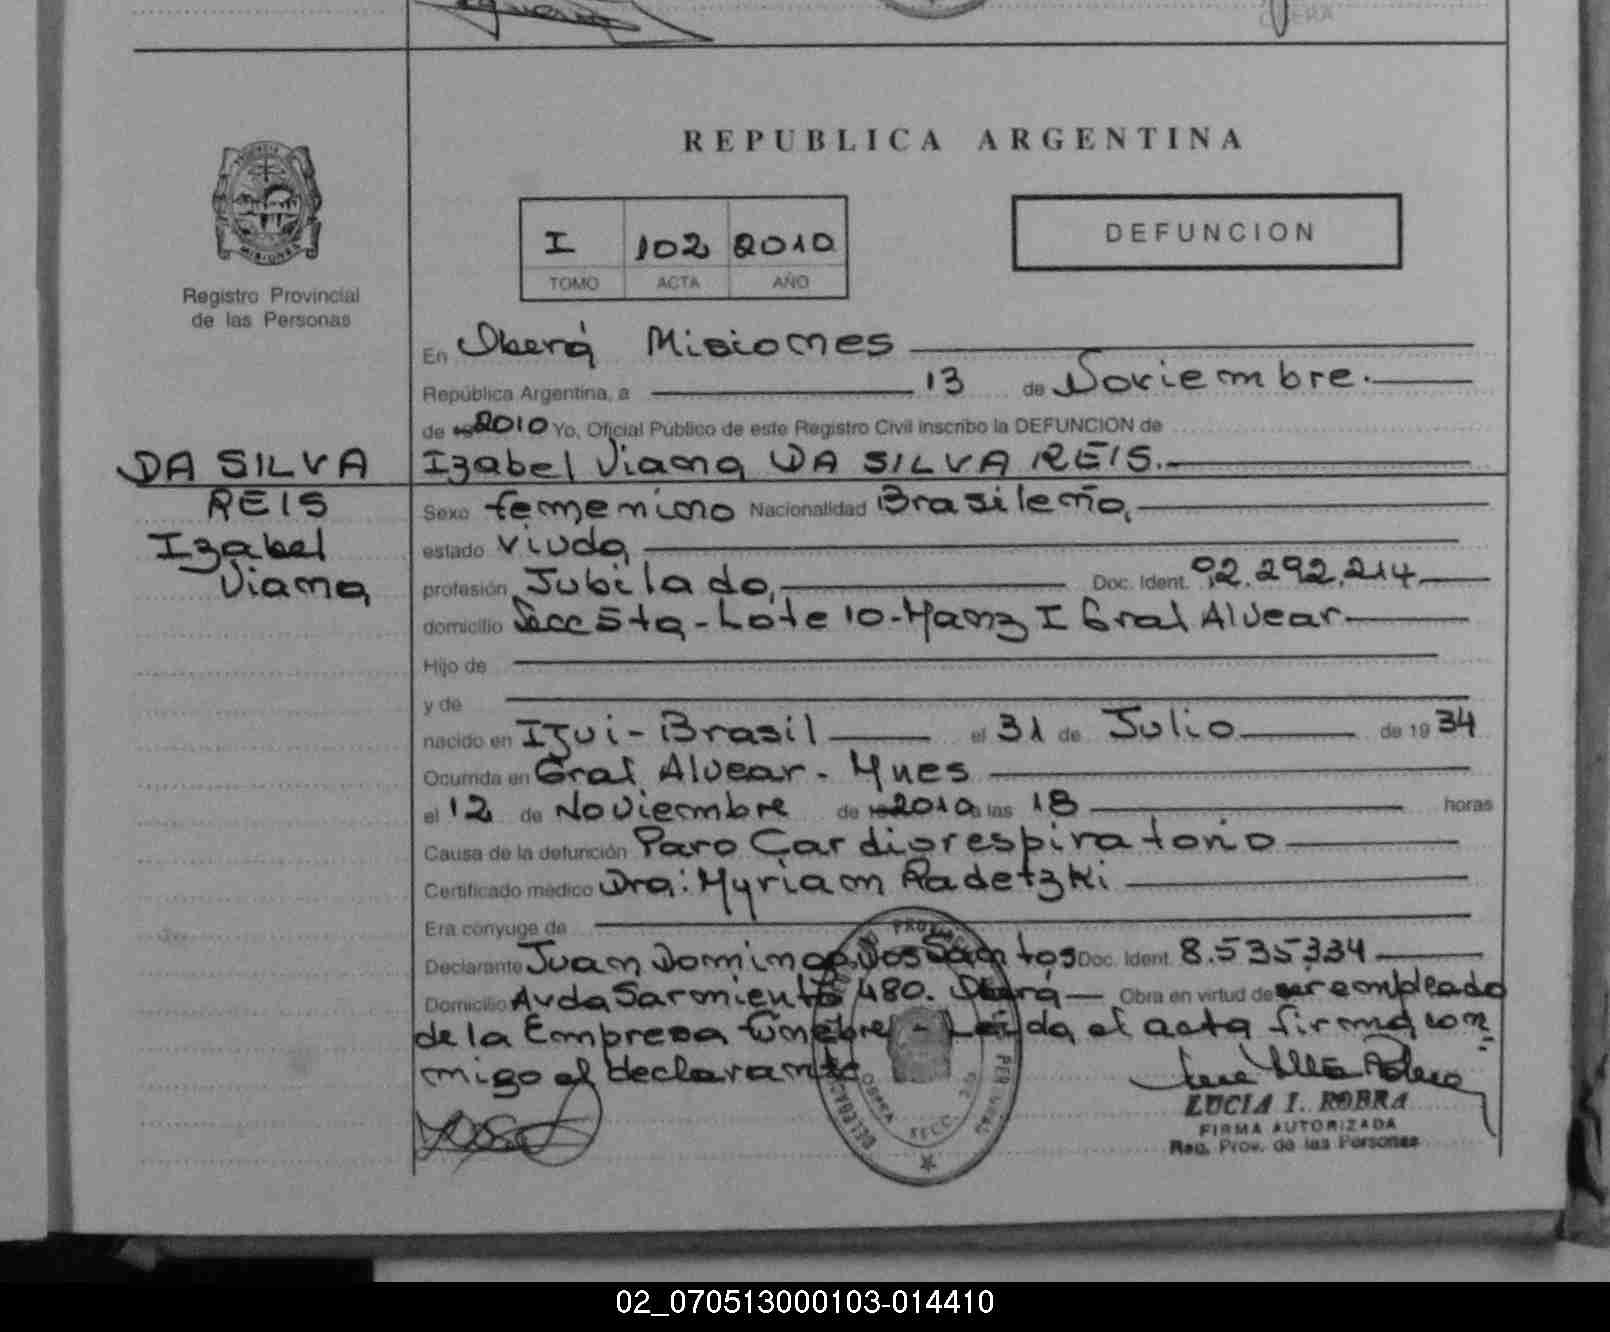 REPUBLICA ARGENTINA
MISIONES
Registro Provincial
de las Personas
I 102 2010
TOMO ACTA AÑO
DEFUNCION
En Oberá Misiones
República Argentina, a 13 de Noviembre.
de 19 2010 Yo, Oficial Público de este Registro Civil inscribo la DEFUNCION de
DA SILVA REIS Izabel Viana
Izabel Viana DA SILVA REIS.
Sexo femenino Nacionalidad Brasileña,
estado viuda
profesión Jubilado, Doc. Ident. 92.292.214
domicilio Secc 5ta - Lote 10 - Manz I Gral Alvear
Hijo de
y de
nacido en Ijui - Brasil el 31 de Julio de 19 34
Ocurrida en Gral Alvear. Mnes
el 12 de Noviembre de 19 2010 a las 18 horas
Causa de la defunción Paro Cardiorespiratorio
Certificado médico Dra: Myriam Radetzki
Era cónyuge de
Declarante Juan Domingo Dos Santos Doc. Ident. 8.535334
Domicilio Avda Sarmiento 480. Oberá Obra en virtud de ser empleado
de la Empresa fúnebre - Leida el acta firma con
migo el declarante
LUCIA I. ROBRA
FIRMA AUTORIZADA
Reg. Prov. de las Personas
02_070513000103-014410